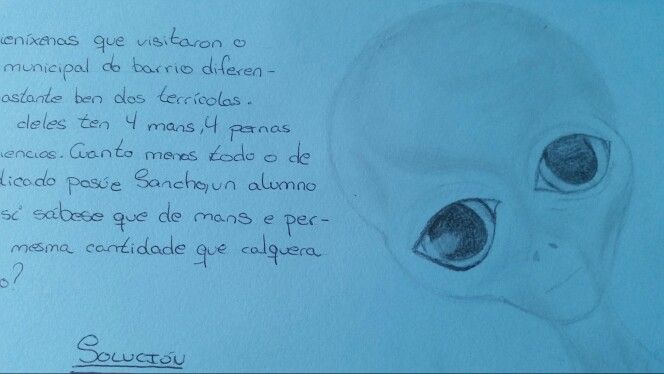 que visitaron o
municipal do barrio diferen-
astante ben dos terrícolas.
deles ten 4 mans, 4 pernas
iencias. Cuanto menos todo o de
dicado posúe Sancho, un alumno
sábese que de mans e per-
mesma cantidade que calquera
o?
SOLUCIÓN